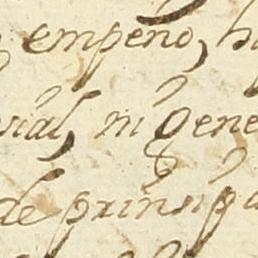 empeño, h
ial, ni gene
de prinsipa